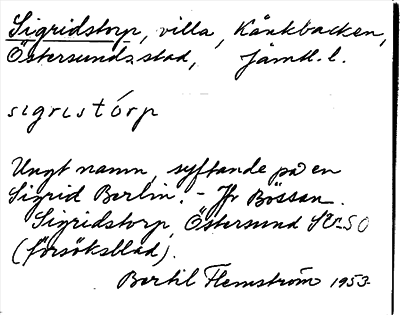 Sigridstorp, villa, Kånkbacken,
Östersunds stad, Jämtl. l.
sigristórp
Ungt namn, syftande på en
Sigrid Berlin. – Jfr Bössan.
Sigridstorp, Östersund SV–SO
(försöksblad).
Bertil Flemström 1953